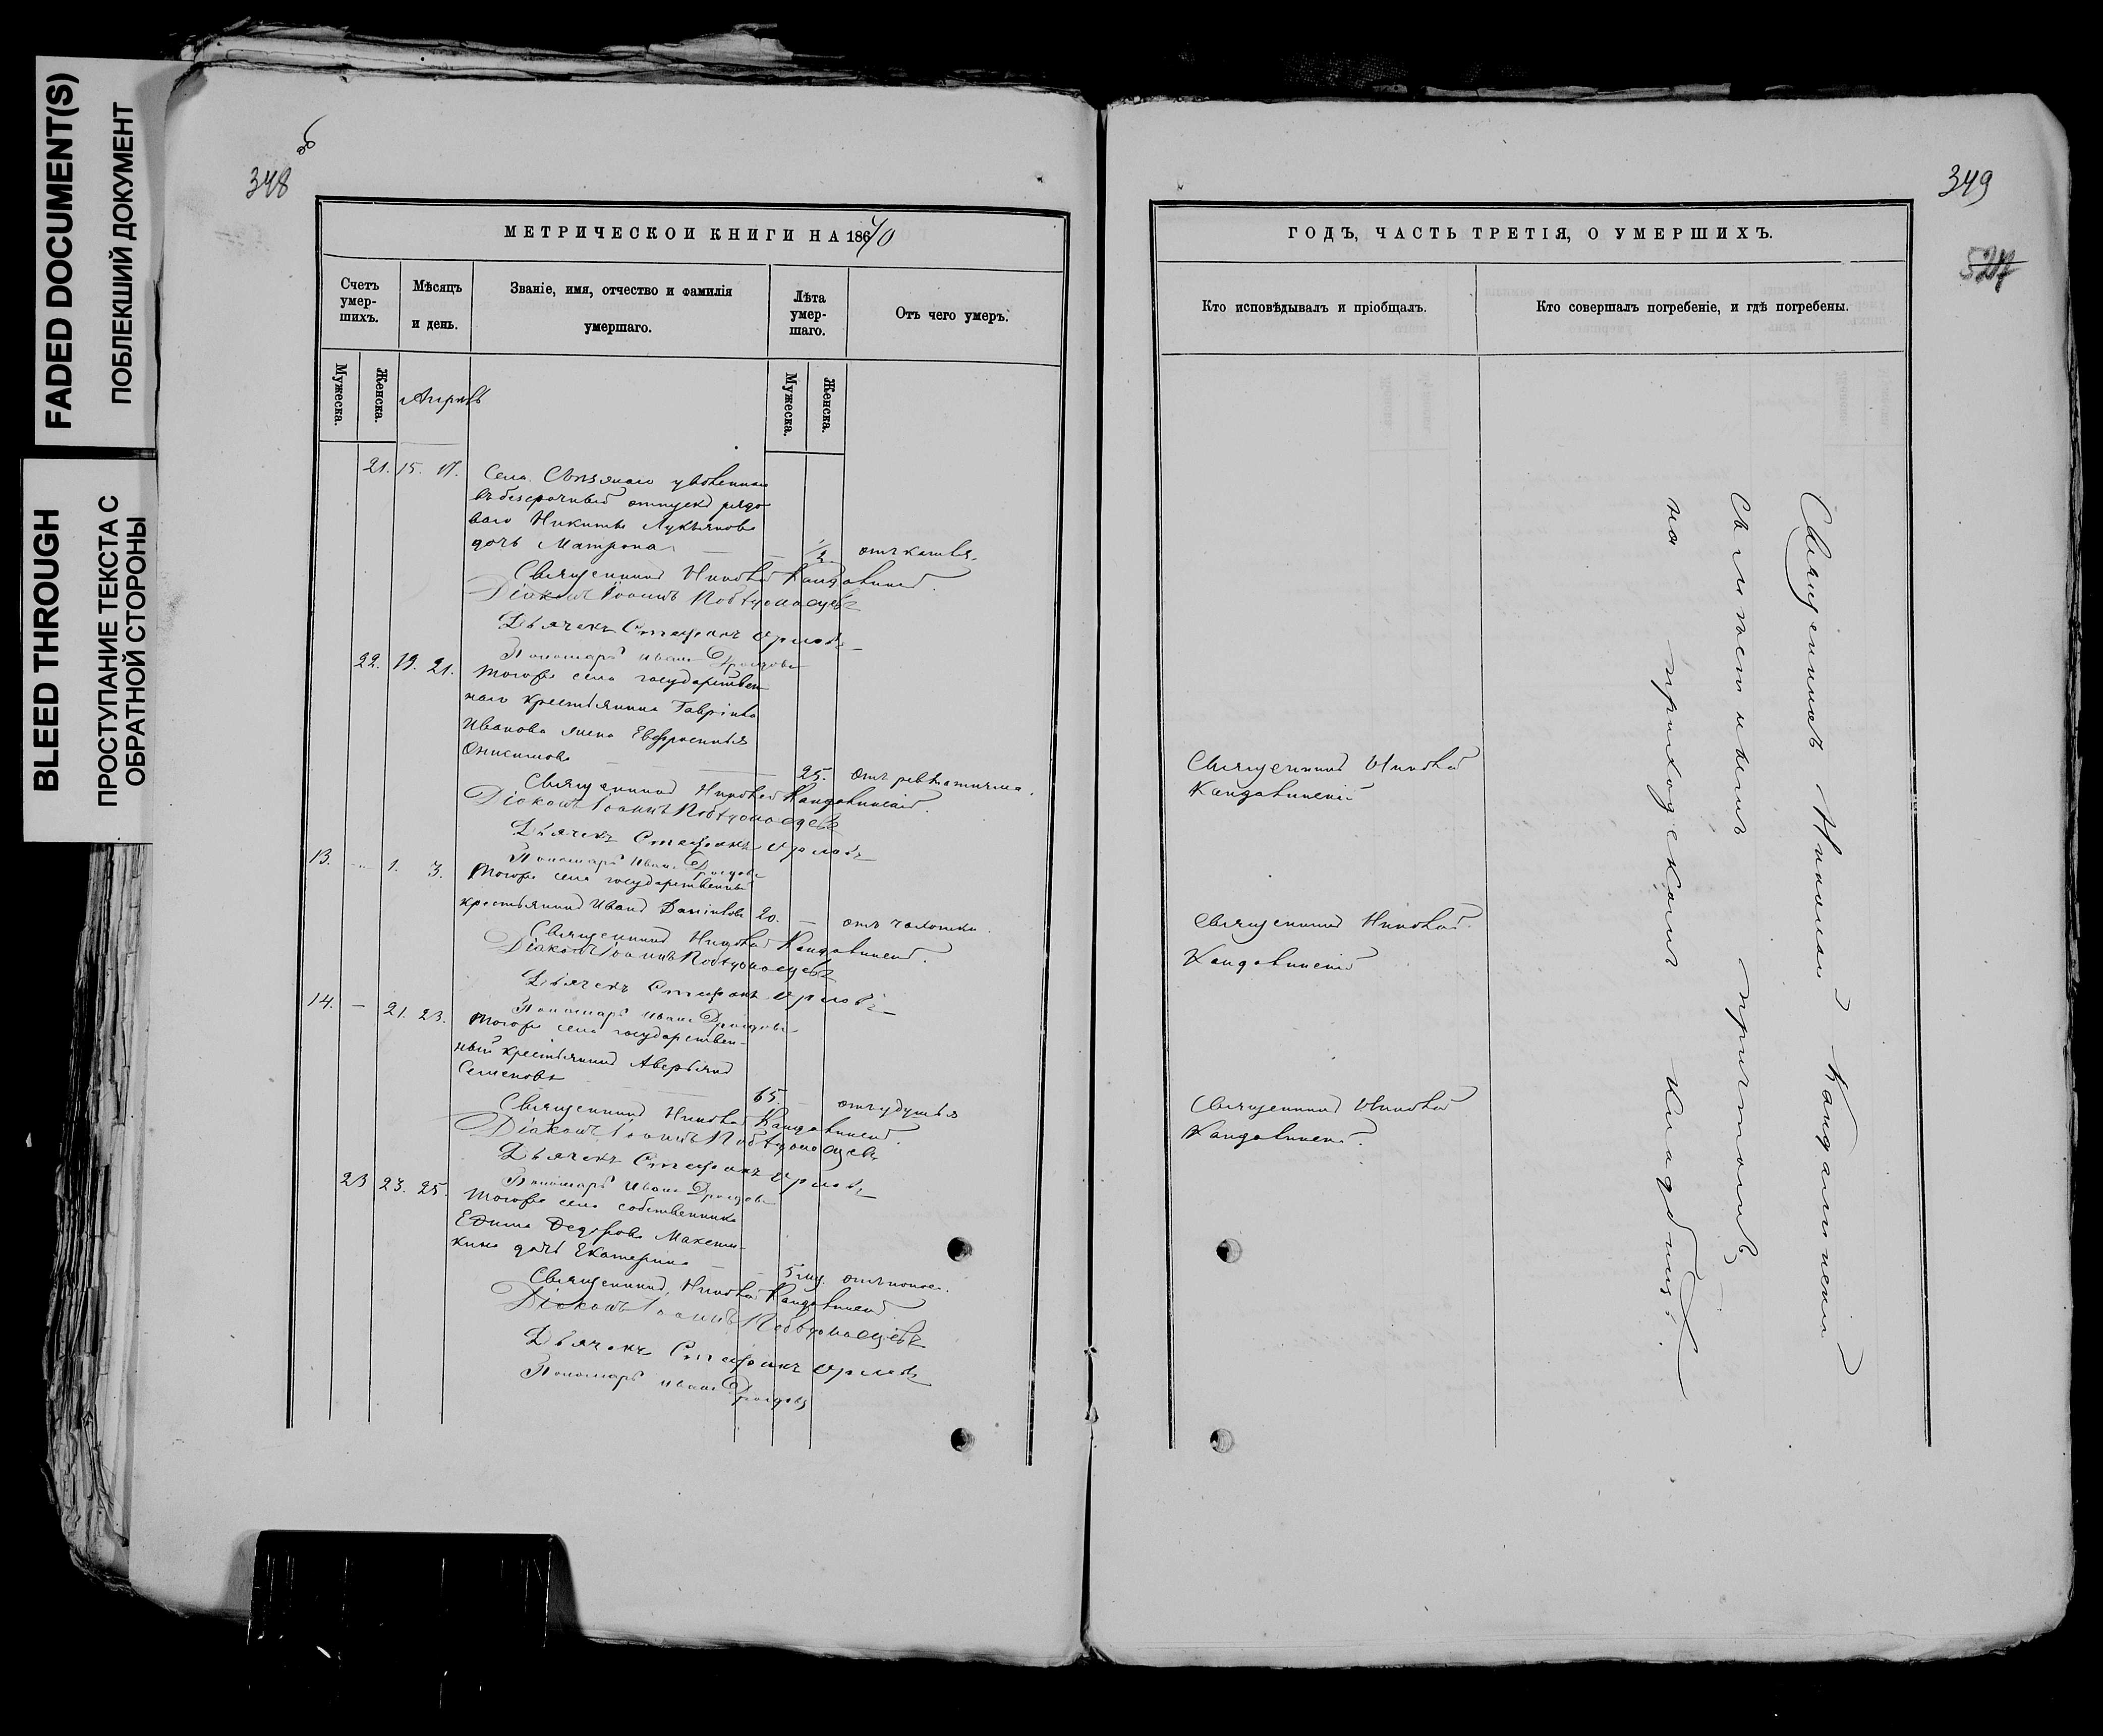 FADED DOCUMENT(S)
ПОБЛЕКШИЙ ДОКУМЕНТ
BLEED THROUGH
ПРОСТУПАНИЕ ТЕКСТА С
ОБРАТНОЙ СТОРОНЫ
348
МЕТРИЧЕСКОИ КНИГИ НА 1870
Счетъ умер-шихъ.
Мѣсяцъ и день.
Званіе, имя, отчество и фамилія
умершаго.
Лѣта умер-шаго.
Отъ чего умеръ.
Мужеска.
Женска.
Апрель
Мужеска.
Женска.
21. 15. 17. Села
въ безсрочный отпускъ рядо
ваго Никиты Лукьянова
дочь Матрона — — 1/2 отъ кашля.
Священникъ Николай
Діаконъ Іоаннъ Победоносцевъ
Дьячекъ Стефанъ Орловъ
Пономарь Иванъ Дроздовъ
22. 19. 21. Тогоже села государствен
наго крестьянина Гавріила
Иванова жена Евфросинія
Онисимова — 25. отъ ревматизма.
Священникъ Николай
Діаконъ Іоаннъ Победоносцевъ
Дьячекъ Стефанъ Орловъ
Пономарь Иванъ Дроздовъ
13. — 1. 3. Тогоже села государственный
крестьянинъ Иванъ Даниловъ 20. — отъ чахотки.
Священникъ Николай
Діаконъ Іоаннъ Победоносцевъ
Дьячекъ Стефанъ Орловъ
Пономарь Иванъ Дроздовъ
14. — 21. 23. Тогоже села государствен-
ный крестьянинъ Аверьянъ
Семеновъ 65. — отъ удушья
Священникъ Николай
Діаконъ Іоаннъ Победоносцевъ
Дьячекъ Стефанъ Орловъ
Пономарь Иванъ Дроздовъ
23 23. 25. Тогоже села собственника
Ефима Федорова Макси-
кина дочь Екатерина — — 5 отъ
Священникъ Николай
Діаконъ Іоаннъ Победоносцевъ
Дьячекъ Стефанъ Орловъ
Пономарь Иванъ Дроздовъ
349
527
ГОДЪ, ЧАСТЬ ТРЕТІЯ, О УМЕРШИХЪ.
Кто исповѣдывалъ и пріобщалъ.
Кто совершалъ погребеніе, и гдѣ погребены.
Священникъ Николай
Священникъ Николай
Священникъ Николай
Священникъ Николай
съ мѣстнымъ причтомъ
на приходскомъ кладбищѣ.